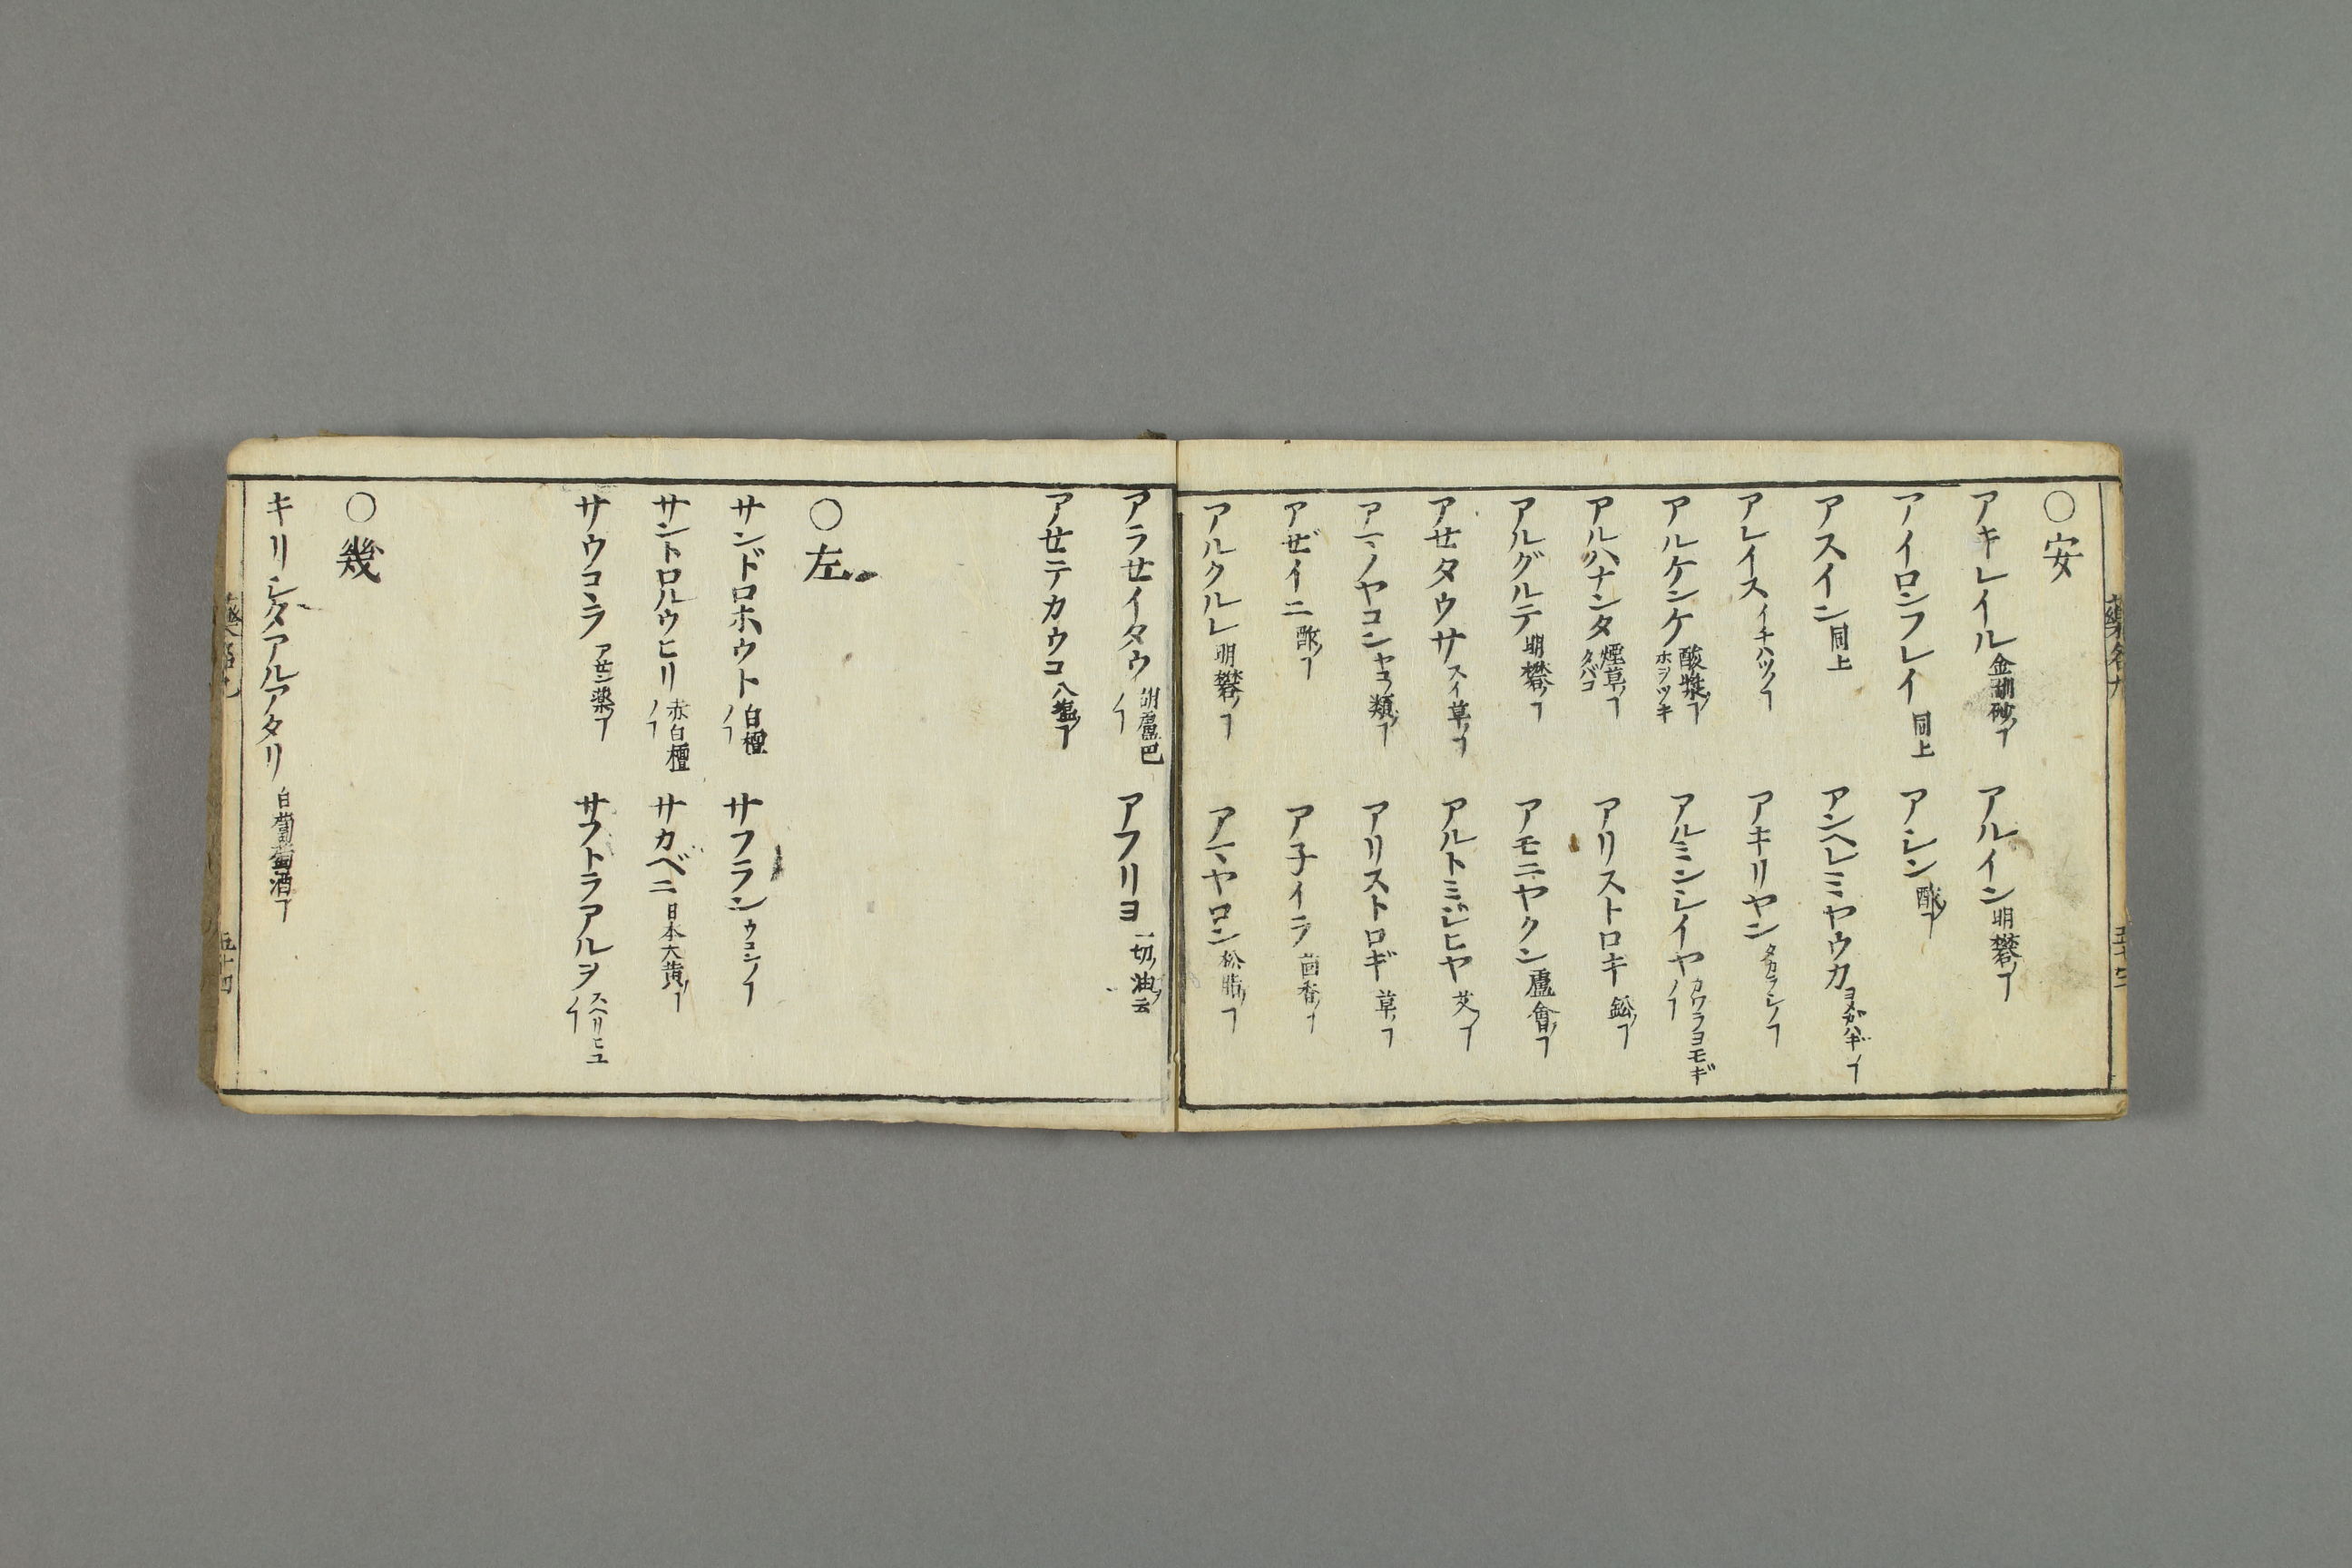 ○安
アキレイル 金硼砂ノヿ アルイン 明礬ノヿ
アイロンフレイ 同上 アレン 酢ノヿ
アスイン 同上 アンヘレミヤウカ ヨメガハギノヿ
アレイス イチハツノヿ アキリヤン タカラシノヿ
アルケンケ 酸漿ノヿ ホヲツキ アルミシレイヤ カワラヨモギノヿ
アルハナンタ 煙草ノヿ タバコ アリストロキ 鈆ノヿ
アルグルテ 明礬ノヿ アモニヤクン 蘆會ノヿ
アせタウサ スイ草ノヿ アルトミジヒヤ 艾ノヿ
アヽノヤコン ヤコノ類ノヿ アリストロギ 草ノヿ
アぜイニ 酢ノヿ ア子イラ 茴香ノヿ
アルクルレ 明礬ノヿ アヽヤロン 松脂ノヿ
アラせイタウ 胡蘆巴ノヿ アフリヨ 一切ノ油ノ云
アせテカウコ 八塩ノヿ
○左
サンドロホウト 白檀ノヿ サフラン ウコンノヿ
サントロルウヒリ 赤白檀ノヿ サカベニ 日本大黄ノヿ
サウコラ アせン薬ノヿ サフトラアルヲ スヘリヒユノヿ
○幾
キリシタアルアタリ 白葡萄酒ノヿ
五十四